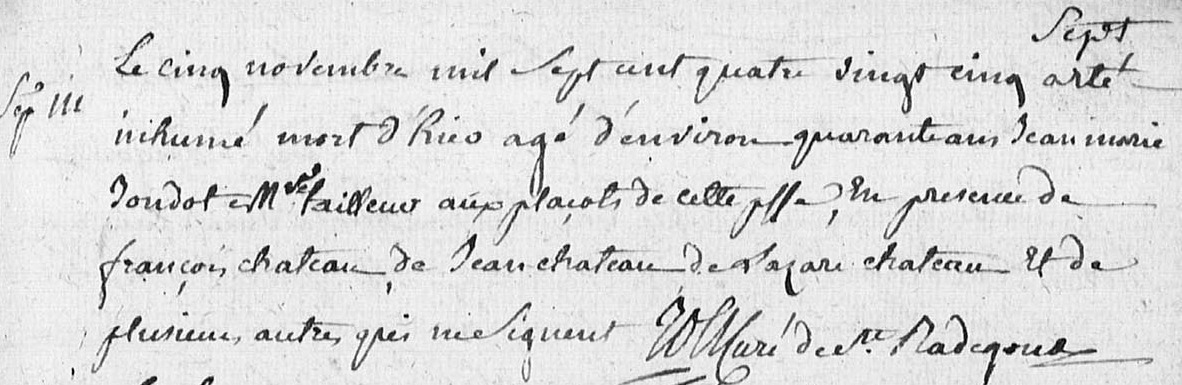 Sep^t
Le cinq novembre mil sept cent quatre vingt cinq a été
Sep^re III
inhumé mort d'hier agé d'environ quarante ans Jean marie
Jondot M^re tailleur aux plaçots de cette psse, En presence de
françois chateau, de Jean chateau de Lazare chateau Et de
plusieurs autres qui ne signent curé de S^te Radegonde